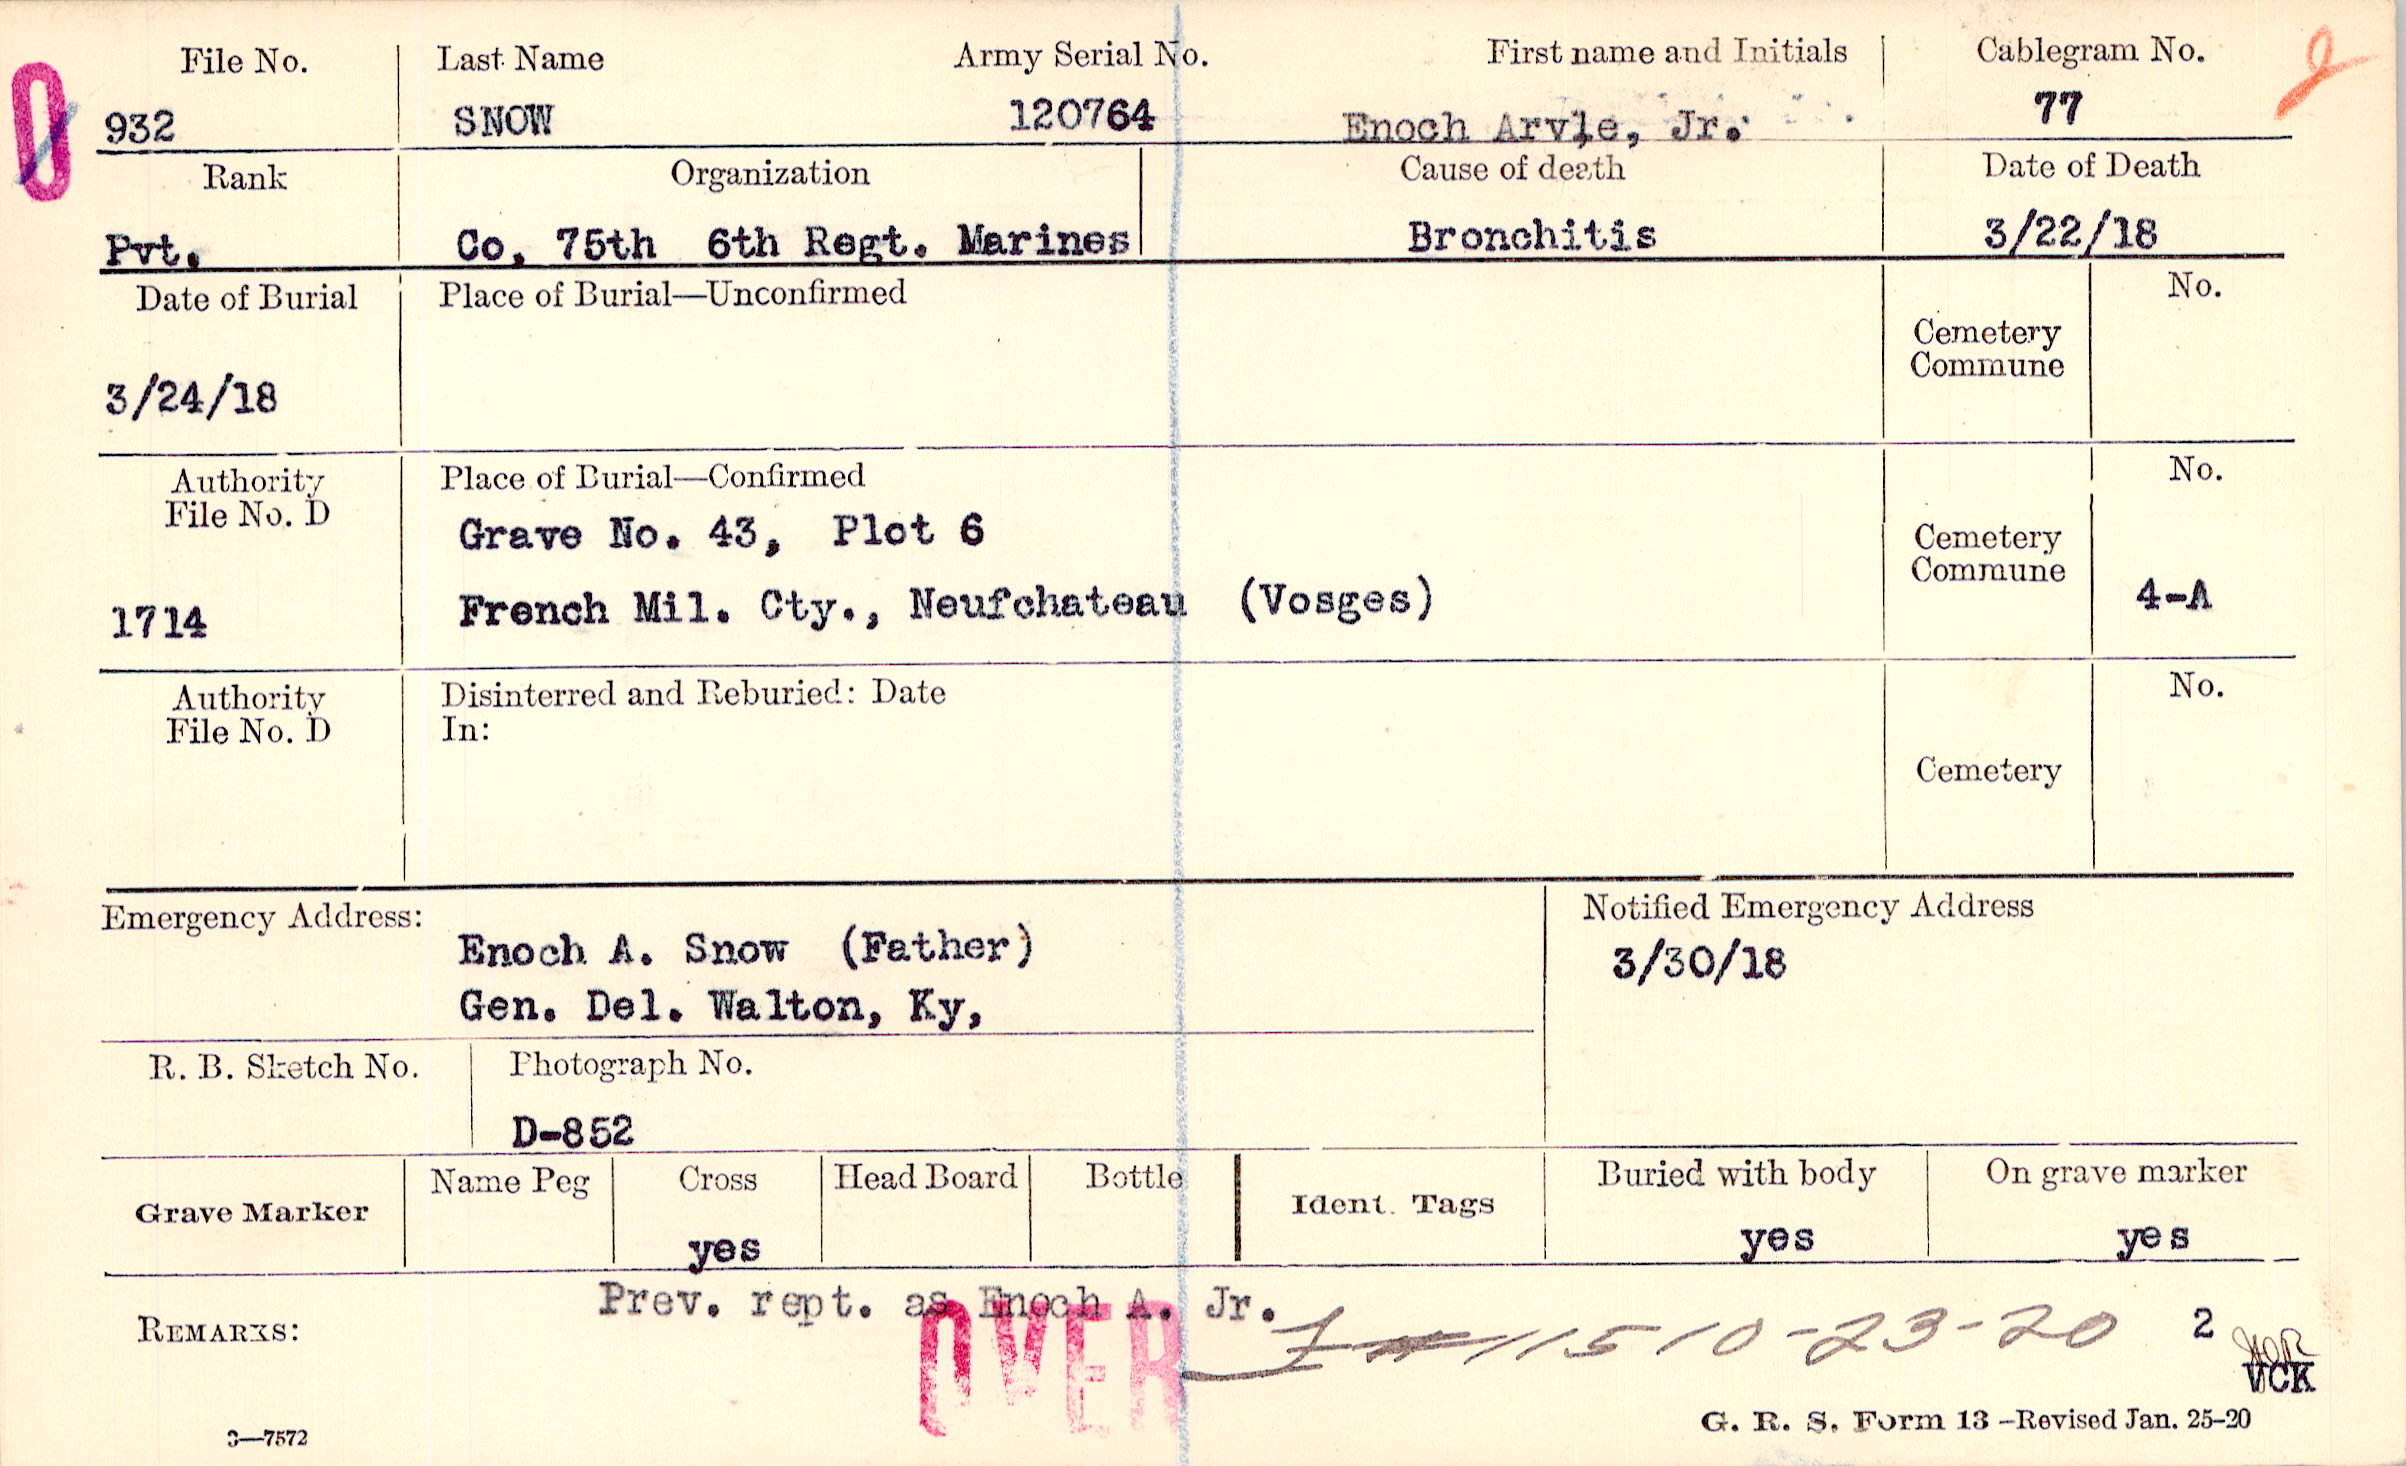 File No. Last Name Army Serial No. First name and Initials Cablegram No.
932 SNOW 120764 Enoch Arvle, Jr. 77
Rank Organization Cause of death Date of Death
Pvt. Co. 75th 6th Regt. Marines Bronchitis 3/22/18
Date of Burial Place of Burial—Unconfirmed No.
Cemetery
Commune
3/24/18
Authority Place of Burial—Confirmed No.
File No. D
Grave No. 43, Plot 6
Cemetery
Commune
1714 French Mil. Cty., Neufchateau (Vosges) 4-A
Authority Disinterred and Reburied: Date No.
File No. D In:
Cemetery
Emergency Address: Notified Emergency Address
Enoch A. Snow (Father) 3/30/18
Gen. Del. Walton, Ky,
R. B. Sketch No. Photograph No.
D-852
Grave Marker Name Peg Cross Head Board Bottle Ident. Tags Buried with body On grave marker
yes yes yes
Prev. rept. as Enoch A. Jr.
REMARKS: OVER 115 10-23-20 2
VCK
3—7572 G. R. S. Form 13 –Revised Jan. 25-20